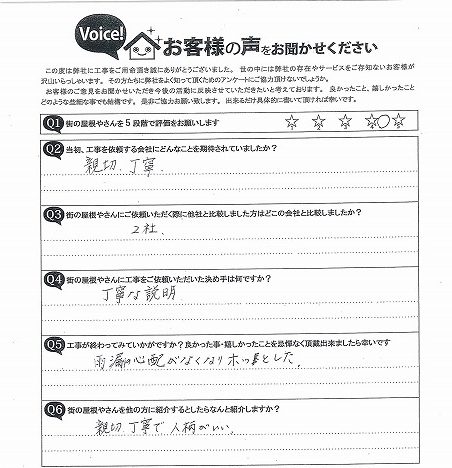 Voice!
お客様の声をお聞かせください
この度は弊社に工事をご用命頂き誠にありがとうございました。 世の中には弊社の存在やサービスをご存知ないお客様が
沢山いらっしゃいます。 その方たちに弊社をよく知って頂くためのアンケートにご協力頂けないでしょうか。
お客様のご意見をお聞かせいただき今後の活動に反映させていただきたいと考えております。 良かったこと、嬉しかったこと
どのような些細な事でも結構です。 是非ご協力お願い致します。 出来るだけ具体的に書いて頂ければ幸いです。
Q1 街の屋根やさんを5段階で評価をお願いします ☆ ☆ ☆ ☆ ○ ☆
Q2 当初、工事を依頼する会社にどんなことを期待されていましたか?
親切、丁寧、
Q3 街の屋根やさんにご依頼いただく際に他社と比較しました方はどこの会社と比較しましたか?
2社、
Q4 街の屋根やさんに工事をご依頼いただいた決め手は何ですか?
丁寧な説明
Q5 工事が終わってみていかがですか?良かった事・嬉しかったことを忌憚なく頂戴出来ましたら幸いです
雨漏の心配がなくなりホッとした。
Q6 街の屋根やさんを他の方に紹介するとしたらなんと紹介しますか?
親切、丁寧で人柄がいい。